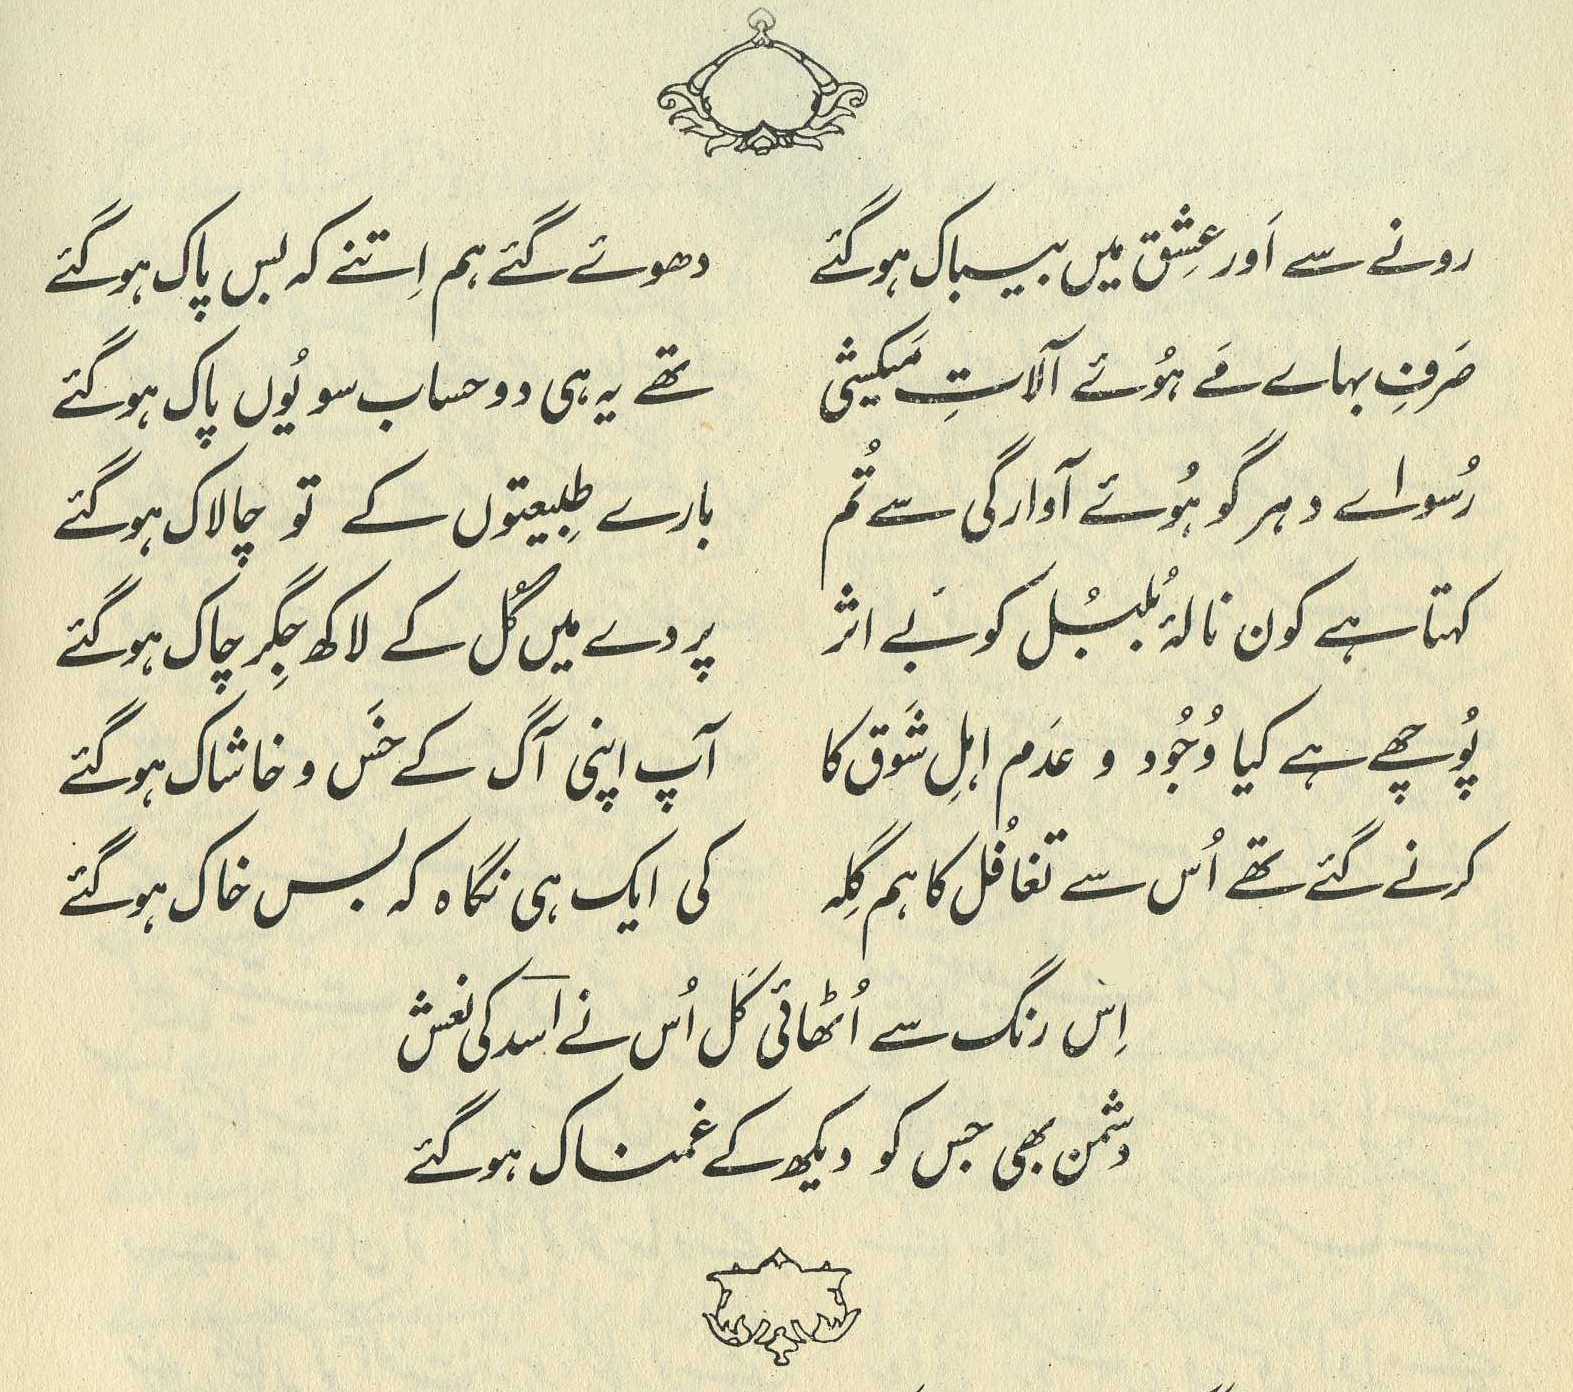 رونے سے اَور عِشق میں بیباک ہوگئے دھوئے گئے ہم اِتنے کہ بس پاک ہوگئے
صَرفِ بہاے مَے ہُوئے آلاتِ مَیکشی تھے یہ ہی دو حساب سو یُوں پاک ہوگئے
رُسواے دہر گو ہُوئے آوارگی سے تُم بارے طِبیعتوں کے تو چالاک ہوگئے
کہتا ہے کون نالۂ بُلبُل کو بَے اثر پردے میں گُل کے لاکھ جِگر چاک ہوگئے
پُوچھے ہے کیا وُجُود و عَدَم اہلِ شَوق کا آپ اپنی آگ کے خَس و خاشاک ہوگئے
کرنے گئے تھے اُس سے تغافُل کا ہم گِلہ کی ایک ہی نگاہ کہ بس خاک ہوگئے
اِس رنگ سے اُٹھائی کَل اُس نے اسؔد کی نعش
دشمن بھی جس کو دیکھ کے غمناک ہوگئے